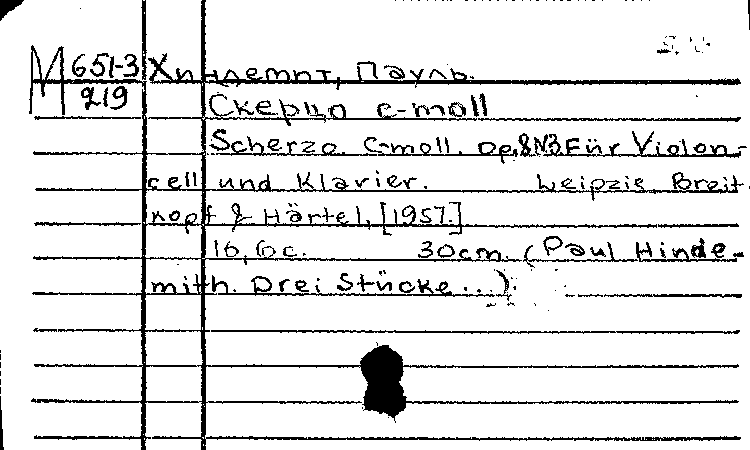 М 651-3 Хиндемит, Пауль.
219 Скерцо c-moll
Scherzo. C-moll. Op.8N3 Für Violon-
cell und Klavier. Leipzig, Breit-
kopf & Härtel, [1957.]
16, 6 с. 30cm. (Paul Hinde-
mith. Drei Stücke...).